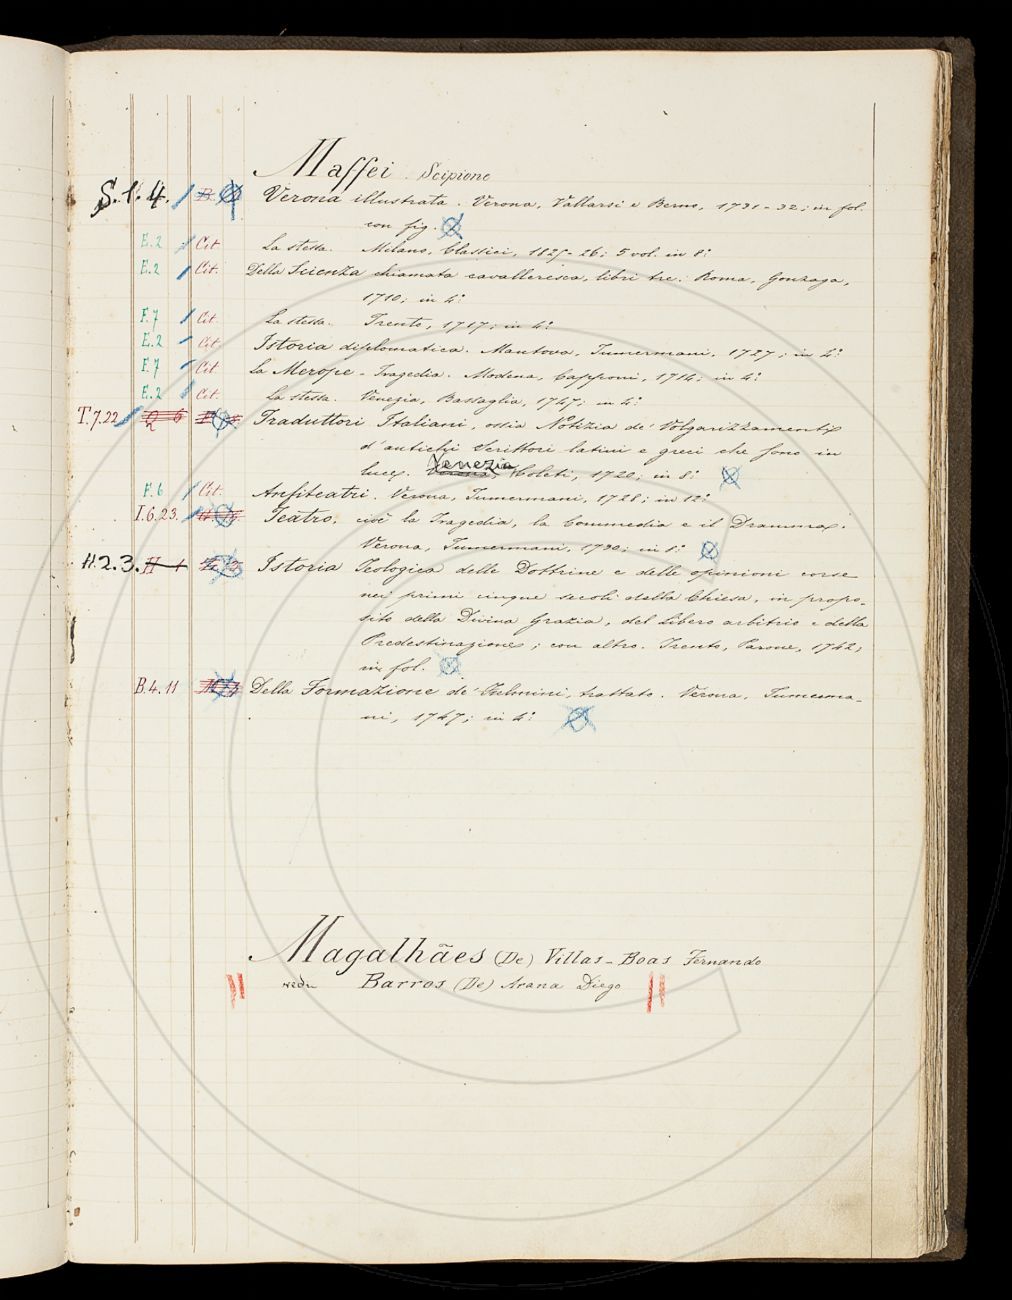 Maffei Scipione
S.1.4. Verona illustrata. Verona, Vallarsi e Berno, 1731-32; in fol.
con fig.
E.2 Cit. La stessa. Milano, Classici, 1825-26; 5 vol. in 8°
E.2 Cit. Della Scienza chiamata cavalleresca, libri tre. Roma, Gonzaga,
1710; in 4°
F.7 Cit. La stessa. Trento, 1717; in 4°
E.2 Cit. Istoria diplomatica. Mantova, Tumermani, 1727; in 4°
F.7 Cit. La Merope - Tragedia. Modena, Capponi, 1714; in 4°
E.2 Cit. La stessa. Venezia, Bassaglia, 1747; in 4°
T.7.22 Traduttori Italiani, ossia Notizia de' Volgarizzamenti
d'antichi Scrittori latini e greci che sono in
luce. Venezia, Coleti, 1720; in 8°
F.6 Cit. Anfiteatri. Verona, Tumermani, 1728; in 12°
I.6.23. Teatro; cioè la Tragedia, la Commedia e il Dramma.
Verona, Tumermani, 1730; in 8°
H.2.3. H-1 Istoria Teologica delle Dottrine e delle opinioni corse
nei primi cinque secoli della Chiesa, in propo-
sito della Divina Grazia, del libero arbitrio e della
Predestinazione; con altro. Trento, Parone, 1742;
in fol.
B.4.11 Della Formazione de' Fulmini, trattato. Verona, Tumerma-
ni, 1747; in 4°
Magalhães (De) Villas-Boas Fernando
vedi Barros (De) Arana Diego